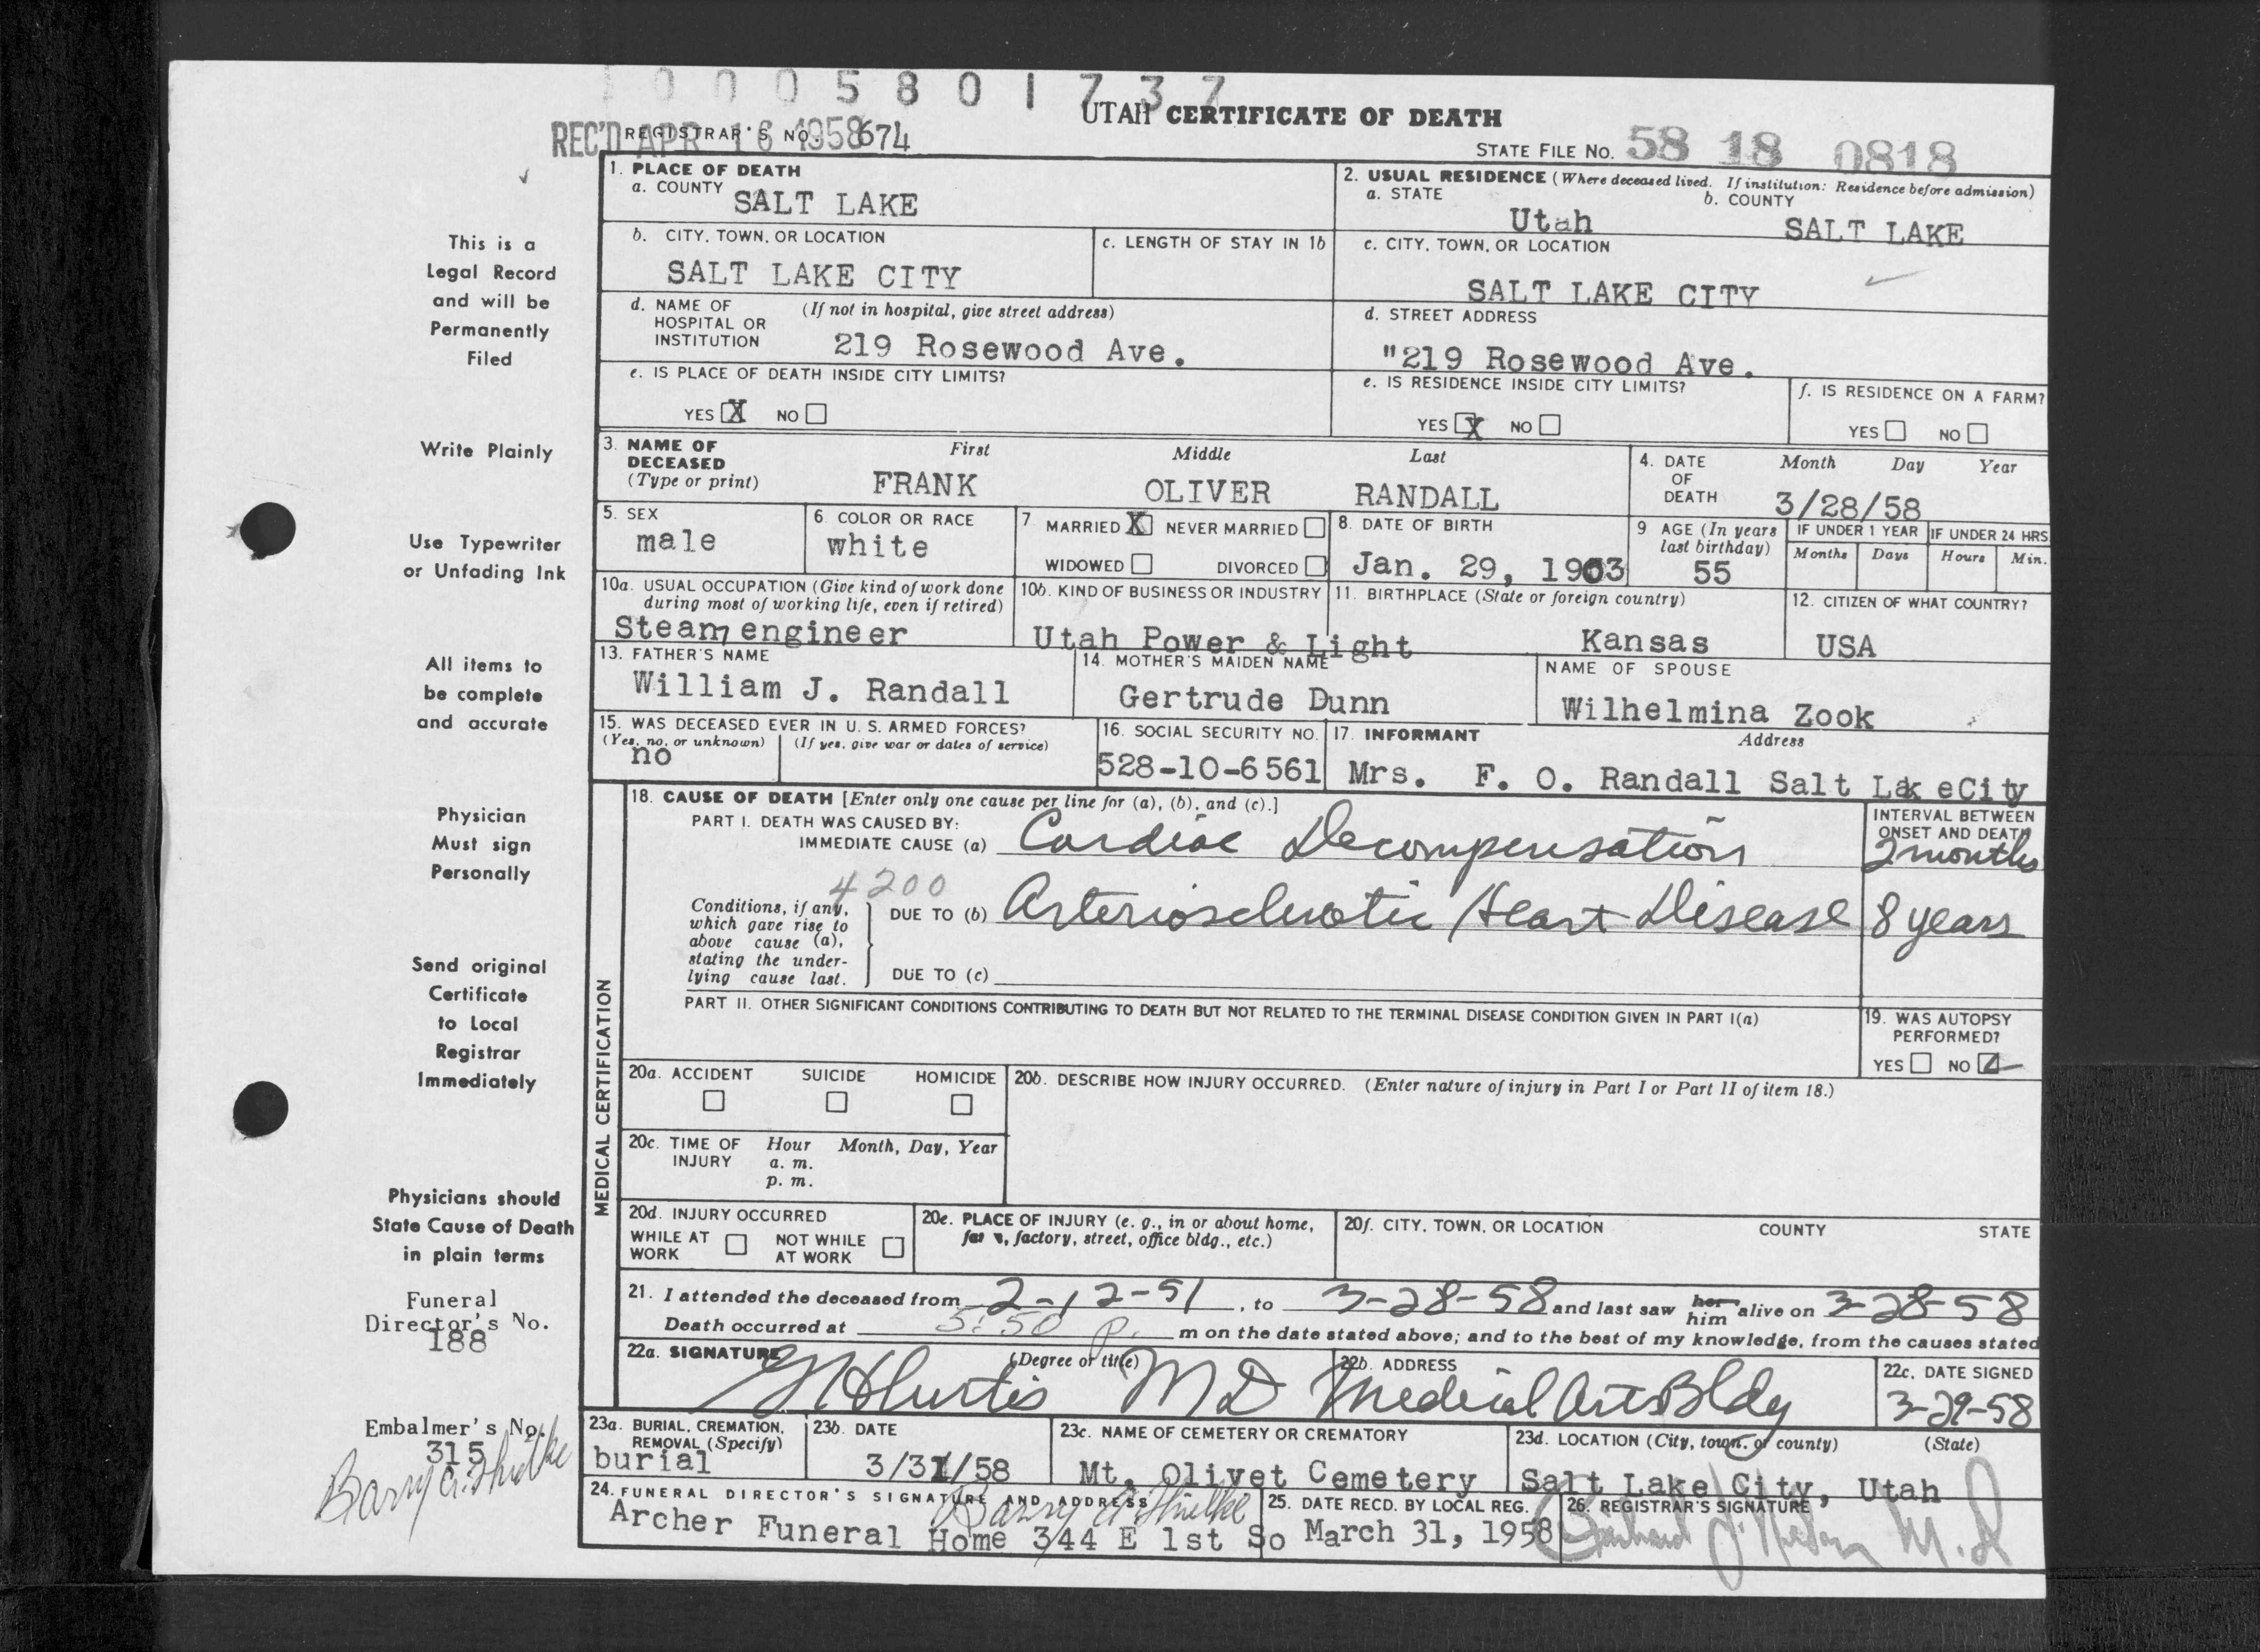 0005801737
UTAH CERTIFICATE OF DEATH
REC'D APR 16 1958
REGISTRAR'S NO. 674
STATE FILE NO. 58 18 0818
This is a
Legal Record
and will be
Permanently
Filed
Write Plainly
Use Typewriter
or Unfading Ink
All items to
be complete
and accurate
Physician
Must sign
Personally
Send original
Certificate
to Local
Registrar
Immediately
Physicians should
State Cause of Death
in plain terms
Funeral
Director's No.
188
Embalmer's No.
315
1. PLACE OF DEATH
a. COUNTY SALT LAKE
2. USUAL RESIDENCE (Where deceased lived. If institution: Residence before admission)
a. STATE Utah b. COUNTY SALT LAKE
b. CITY, TOWN, OR LOCATION
SALT LAKE CITY
c. LENGTH OF STAY IN 1b
c. CITY, TOWN, OR LOCATION
SALT LAKE CITY
d. NAME OF HOSPITAL OR INSTITUTION (If not in hospital, give street address)
219 Rosewood Ave.
d. STREET ADDRESS
"219 Rosewood Ave.
e. IS PLACE OF DEATH INSIDE CITY LIMITS?
YES X NO
e. IS RESIDENCE INSIDE CITY LIMITS?
YES X NO
f. IS RESIDENCE ON A FARM?
YES NO
3. NAME OF DECEASED (Type or print)
First Middle Last
FRANK OLIVER RANDALL
4. DATE OF DEATH Month Day Year
3/28/58
5. SEX
male
6. COLOR OR RACE
white
7 MARRIED X NEVER MARRIED
WIDOWED DIVORCED
8. DATE OF BIRTH
Jan. 29, 1903
9 AGE (In years last birthday)
55
IF UNDER 1 YEAR
Months Days
IF UNDER 24 HRS
Hours Min.
10a. USUAL OCCUPATION (Give kind of work done during most of working life, even if retired)
Steam engineer
10b. KIND OF BUSINESS OR INDUSTRY
Utah Power & Light
11. BIRTHPLACE (State or foreign country)
Kansas
12. CITIZEN OF WHAT COUNTRY?
USA
13. FATHER'S NAME
William J. Randall
14. MOTHER'S MAIDEN NAME
Gertrude Dunn
NAME OF SPOUSE
Wilhelmina Zook
15. WAS DECEASED EVER IN U. S. ARMED FORCES?
(Yes, no, or unknown) (If yes, give war or dates of service)
no
16. SOCIAL SECURITY NO.
528-10-6561
17. INFORMANT Address
Mrs. F. O. Randall Salt LakeCity
MEDICAL CERTIFICATION
18. CAUSE OF DEATH [Enter only one cause per line for (a), (b), and (c).]
PART I. DEATH WAS CAUSED BY:
IMMEDIATE CAUSE (a) Cardiac Decompensation
INTERVAL BETWEEN ONSET AND DEATH
2 months
4200
Conditions, if any, which gave rise to above cause (a), stating the underlying cause last.
DUE TO (b) Arteriosclerotic Heart Disease 8 years
DUE TO (c)
PART II. OTHER SIGNIFICANT CONDITIONS CONTRIBUTING TO DEATH BUT NOT RELATED TO THE TERMINAL DISEASE CONDITION GIVEN IN PART I(a)
19. WAS AUTOPSY PERFORMED?
YES NO
20a. ACCIDENT SUICIDE HOMICIDE
20b. DESCRIBE HOW INJURY OCCURRED. (Enter nature of injury in Part I or Part II of item 18.)
20c. TIME OF INJURY Hour Month, Day, Year
a. m.
p. m.
20d. INJURY OCCURRED
WHILE AT WORK NOT WHILE AT WORK
20e. PLACE OF INJURY (e. g., in or about home, factory, street, office bldg., etc.)
20f. CITY, TOWN, OR LOCATION COUNTY STATE
21. I attended the deceased from 2-12-51, to 3-28-58 and last saw her him alive on 3-28-58
Death occurred at 5:50 p. m on the date stated above; and to the best of my knowledge, from the causes stated
22a. SIGNATURE (Degree or title)
MD
22b. ADDRESS
Medical Arts Bldg
22c. DATE SIGNED
3-29-58
23a. BURIAL, CREMATION, REMOVAL (Specify)
burial
23b. DATE
3/31/58
23c. NAME OF CEMETERY OR CREMATORY
Mt. Olivet Cemetery
23d. LOCATION (City, town, or county) (State)
Salt Lake City, Utah
24. FUNERAL DIRECTOR'S SIGNATURE AND ADDRESS
Archer Funeral Home 344 E 1st So
25. DATE RECD. BY LOCAL REG.
March 31, 1958
26. REGISTRAR'S SIGNATURE